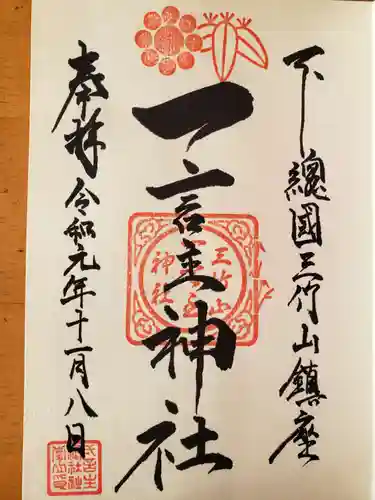 下總國三竹山鎮座
一言主神社
三竹山
一言主
神社
奉拝 令和元年十一月八日